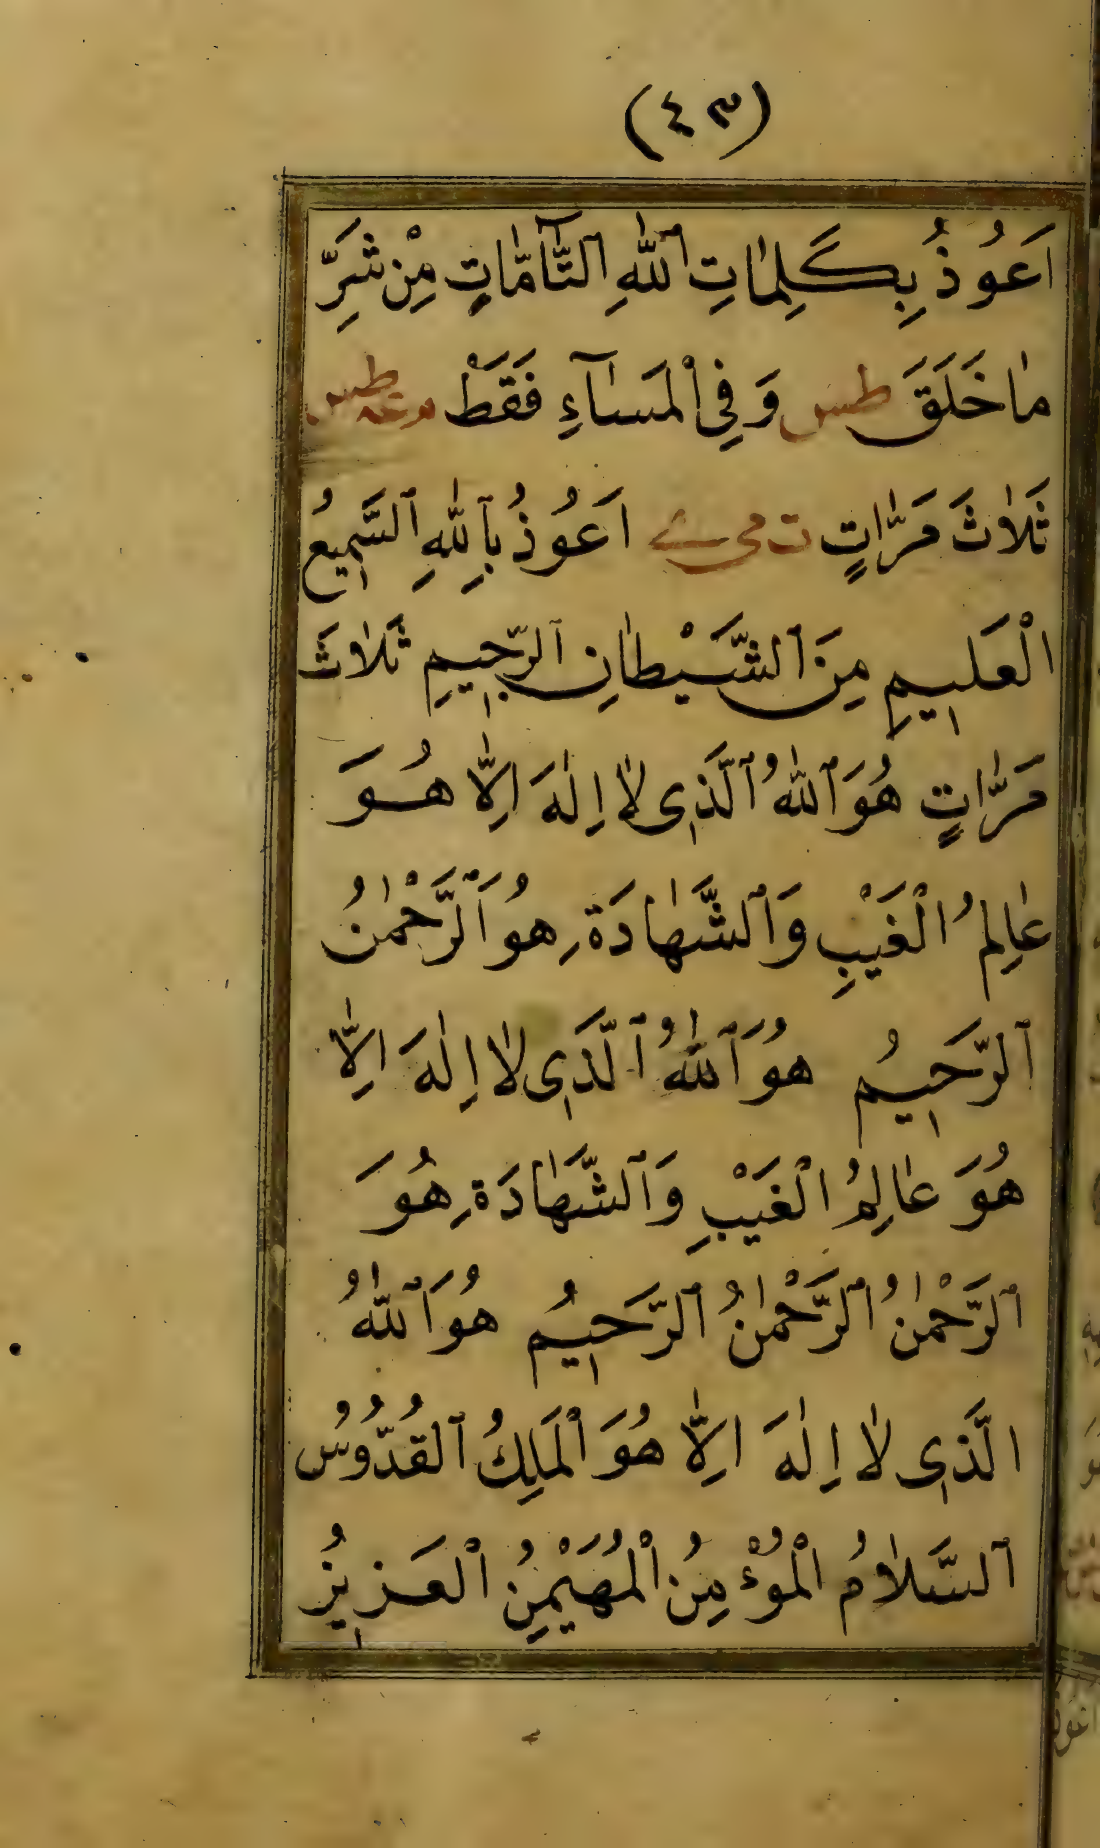 (٤٣)
اَعُوذُ بِكَلِمَاتِ اللّٰهِ التَّآمَّاتِ مِنْ شَرِّ
مَا خَلَقَ طس وَفِي الْمَسَآءِ فَقَطْ مه عه طس
ثَلَاثَ مَرَّاتٍ ت مى اَعُوذُ بِاللّٰهِ السَّمِيعِ
الْعَلِيمِ مِنَ الشَّيْطَانِ الرَّجِيمِ ثَلَاثَ
مَرَّاتٍ هُوَ اللّٰهُ الَّذِى لَا اِلٰهَ اِلَّا هُوَ
عَالِمُ الْغَيْبِ وَالشَّهَادَةِ هُوَ الرَّحْمٰنُ
الرَّحِيمُ هُوَ اللّٰهُ الَّذِى لَا اِلٰهَ اِلَّا
هُوَ عَالِمُ الْغَيْبِ وَالشَّهَادَةِ هُوَ
الرَّحْمٰنُ الرَّحْمٰنُ الرَّحِيمُ هُوَ اللّٰهُ
الَّذِى لَا اِلٰهَ اِلَّا هُوَ الْمَلِكُ الْقُدُّوسُ
السَّلَامُ الْمُؤْمِنُ الْمُهَيْمِنُ الْعَزِيزُ